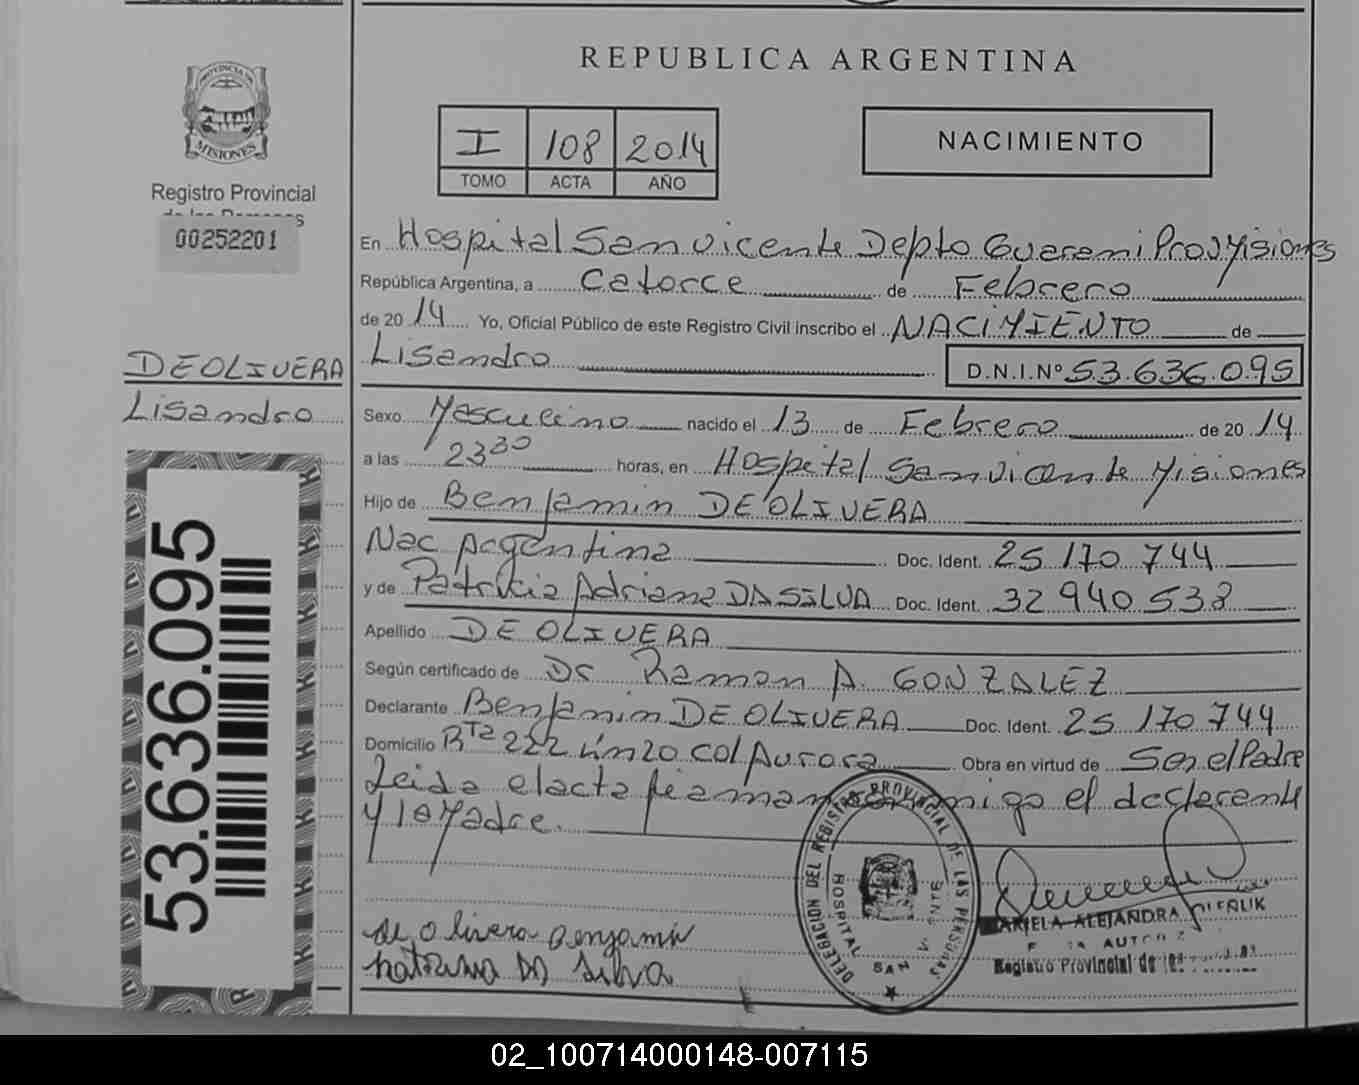 REPUBLICA ARGENTINA
PROVINCIA DE
MISIONES
Registro Provincial
de las Personas
00252201
I 108 2014
TOMO ACTA AÑO
NACIMIENTO
En Hospital San Vicente Depto Guarani Prov Misiones
República Argentina, a Catorce de Febrero
de 2014 Yo, Oficial Público de este Registro Civil inscribo el NACIMIENTO de
Lisandro D.N.I.Nº 53.636.095
DE OLIVERA
Lisandro
53.636.095
Sexo Masculino nacido el 13 de Febrero de 2014
a las 23 30 horas, en Hospital San Vicente Misiones
Hijo de Benjamin DE OLIVERA
Nac Argentina Doc. Ident. 25 170 744
y de Patricia Adriana DA SILVA Doc. Ident. 32 940 538
Apellido DE OLIVERA
Según certificado de Dr Ramon A. GONZALEZ
Declarante Benjamin DE OLIVERA Doc. Ident. 25 170 744
Domicilio Rta 222 Km 20 Col Aurora Obra en virtud de Ser el Padre
Leida el acta firman conmigo el declarante
y la Madre.
DELEGACION DEL REGISTRO PROVINCIAL DE LAS PERSONAS
HOSPITAL SAN VICENTE
ALEJANDRA
Registro Provincial de las
de olivera Benjamin
Patricia DA Silva
02_100714000148-007115